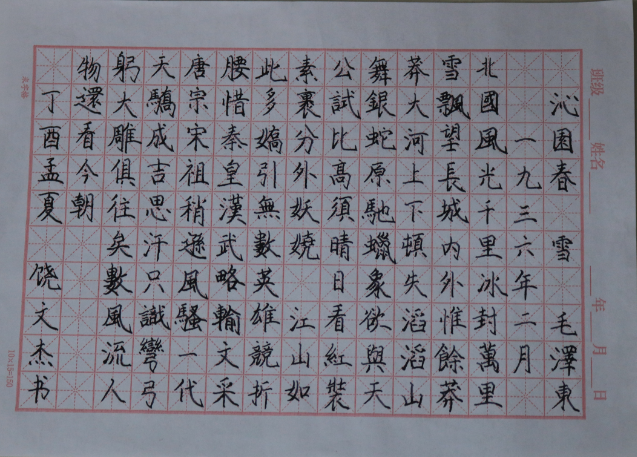 班级 姓名 年 月 日
沁园春 雪 毛澤東
一九三六年二月
北國風光千里冰封萬里
雪飄望長城内外惟餘莽
莽大河上下頓失滔滔山
舞銀蛇原馳蠟象欲與天
公試比高須晴日看紅裝
素裹分外妖嬈 江山如
此多嬌引無數英雄競折
腰惜秦皇漢武略輸文采
唐宗宋祖稍遜風騷一代
天驕成吉思汗只識彎弓
躬大雕俱往矣數風流人
物還看今朝
丁酉孟夏 饶文杰书